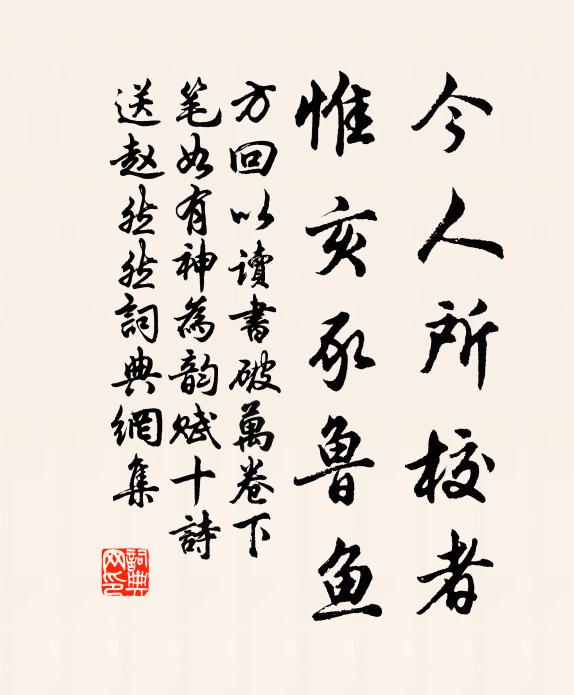 今人所校者
惟亥豕鲁鱼
方回以讀書破萬卷下
笔如有神為韵赋十詩
送赵然然詞典網集
詞典网印